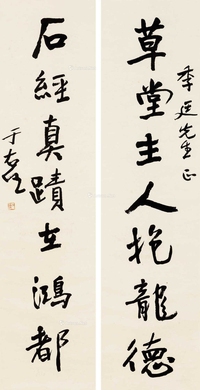 草堂主人抱龍德
季廷先生正
石經真蹟在鴻都
于右任